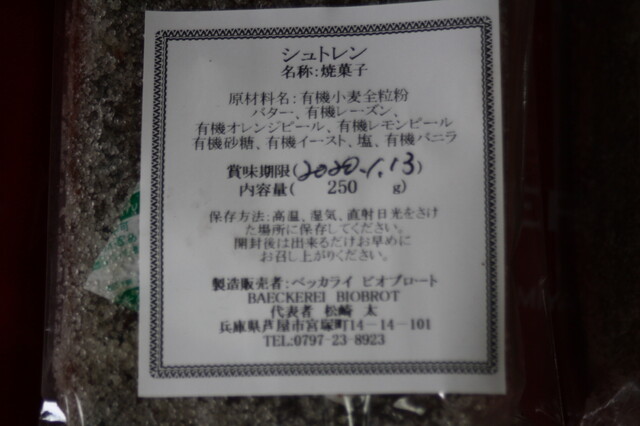 シュトレン
名称:焼菓子
原材料名:有機小麦全粒粉
バター、有機レーズン、
有機オレンジピール、有機レモンピール
有機砂糖、有機イースト、塩、有機バニラ
賞味期限(2020.1.13)
内容量( 250 g)
保存方法:高温、湿気、直射日光をさけ
た場所に保存してください。
開封後は出来るだけお早めに
お召し上がりください。
製造販売者:ベッカライ ビオブロート
BAECKEREI BIOBROT
代表者 松崎 太
兵庫県芦屋市宮塚町14-14-101
TEL:0797-23-8923